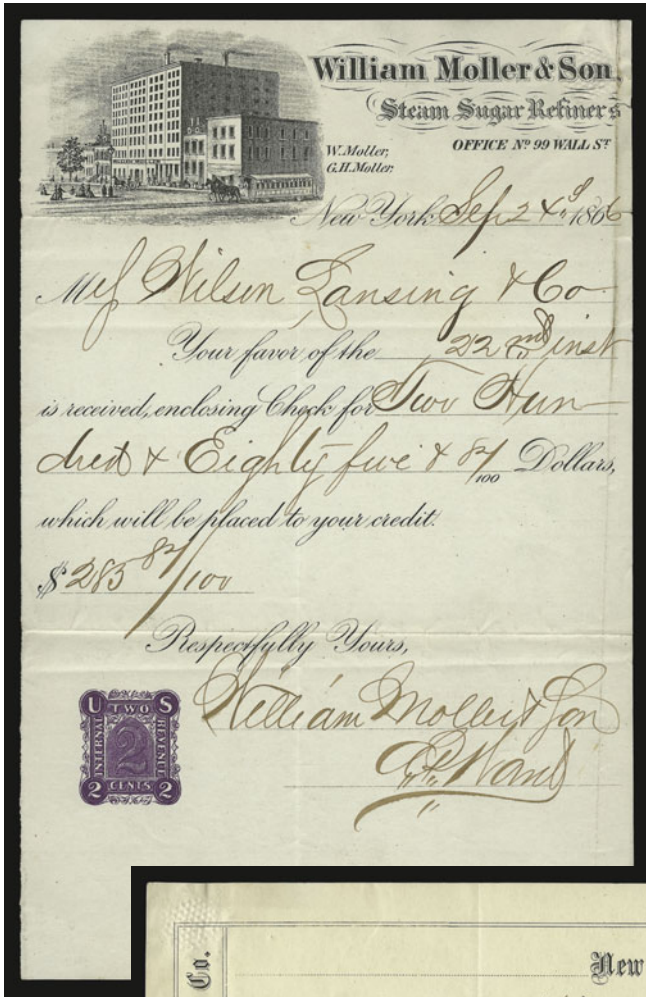 William Moller & Son,
Steam Sugar Refiners
OFFICE No 99 WALL ST
W. Moller,
G.H. Moller.
New York Sep 24th 1866
Mess Wilson Lansing & Co
Your favor of the 22nd inst
is received, enclosing Check for Two Hun-
dred & Eighty five & 82/100 Dollars,
which will be placed to your credit.
$ 285 82/100
Respectfully Yours,
William Moller & Son
Ward
U S
TWO
INTERNAL REVENUE
2
CENTS
2 2
Co.
New